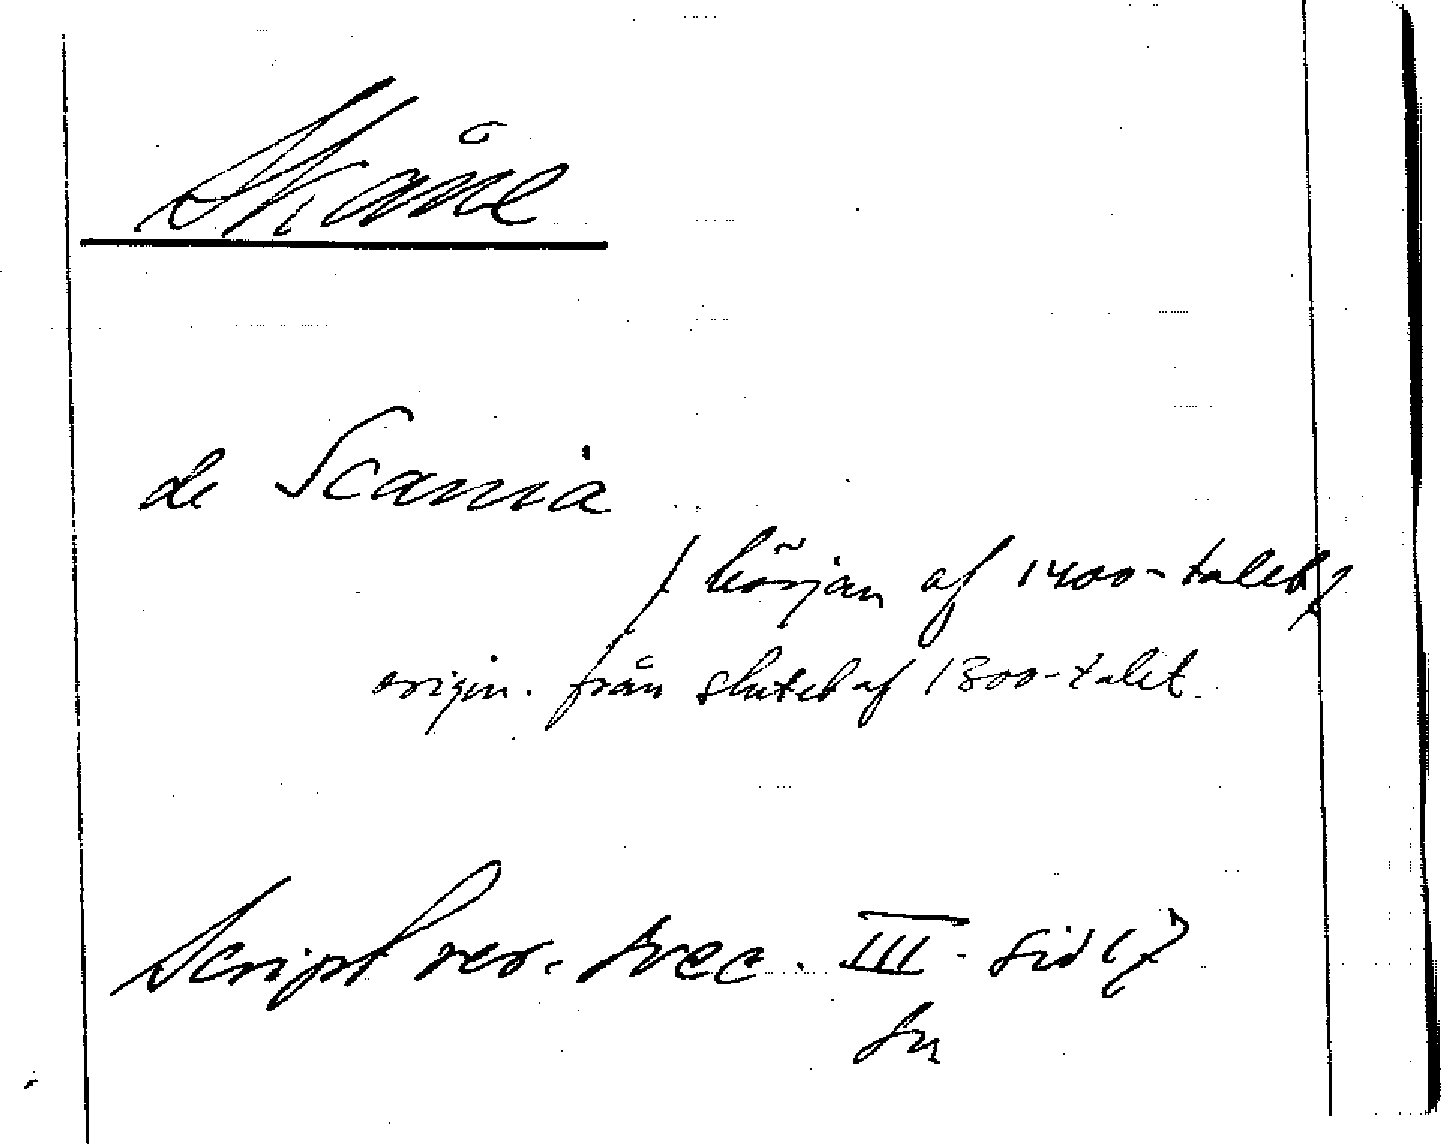 Skåne
de Scania
/ början af 1400-talet /
origin. från slutet af 1300-talet.
Script rer. svec. III. sid 17